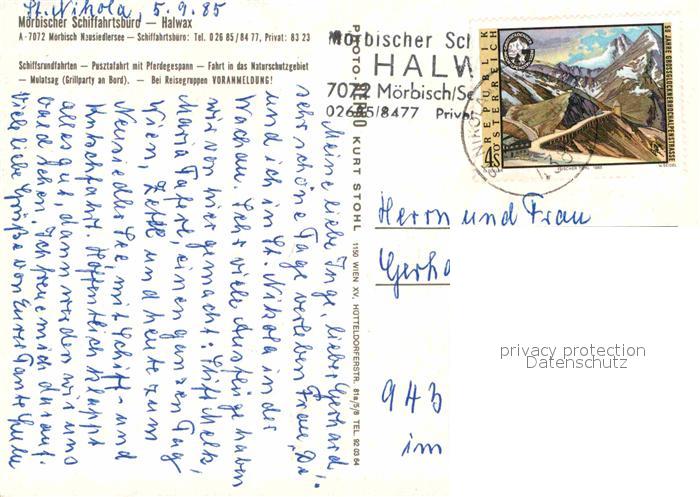 St. Nikola, 5.9.85
Mörbischer Schiffahrtsbüro — Halwax
A-7072 Mörbisch Neusiedlersee — Schiffahrtsbüro: Tel. 0 26 85 / 84 77, Privat: 83 23
Schiffsrundfahrten — Pusztafahrt mit Pferdegespann — Fahrt in das Naturschutzgebiet
— Mulatsag (Grillparty an Bord). — Bei Reisegruppen VORANMELDUNG!
Meine liebe Inge, lieber Gerhard!
sehr schöne Tage verleben Frau
und ich in St. Nikola in der
Wachau. Sehr viele Ausflüge haben
wir von hier gemacht: Stift Melk,
Maria Taferl, einen ganzen Tag
Wien, Zettl und heute zum
Neusiedler See mit Schiff- und
Kutschfahrt. Hoffentlich klappt
alles gut, dann werden wir uns
bald sehen. Ich freue mich darauf.
Viele liebe Grüße von Eurer Tante
PHOTO- KURT STOHL 1150 WIEN XV, HÜTTELDORFERSTR. 81a/5/8 TEL. 92 03 64
Mörbischer Sc
HALW
7072 Mörbisch/Se
02685/8477 Privat
REPUBLIK
ÖSTERREICH
4 S
50 JAHRE GROSSGLOCKNER HOCHALPENSTRASSE
Herrn und Frau
Gerha
943
im
privacy protection
Datenschutz